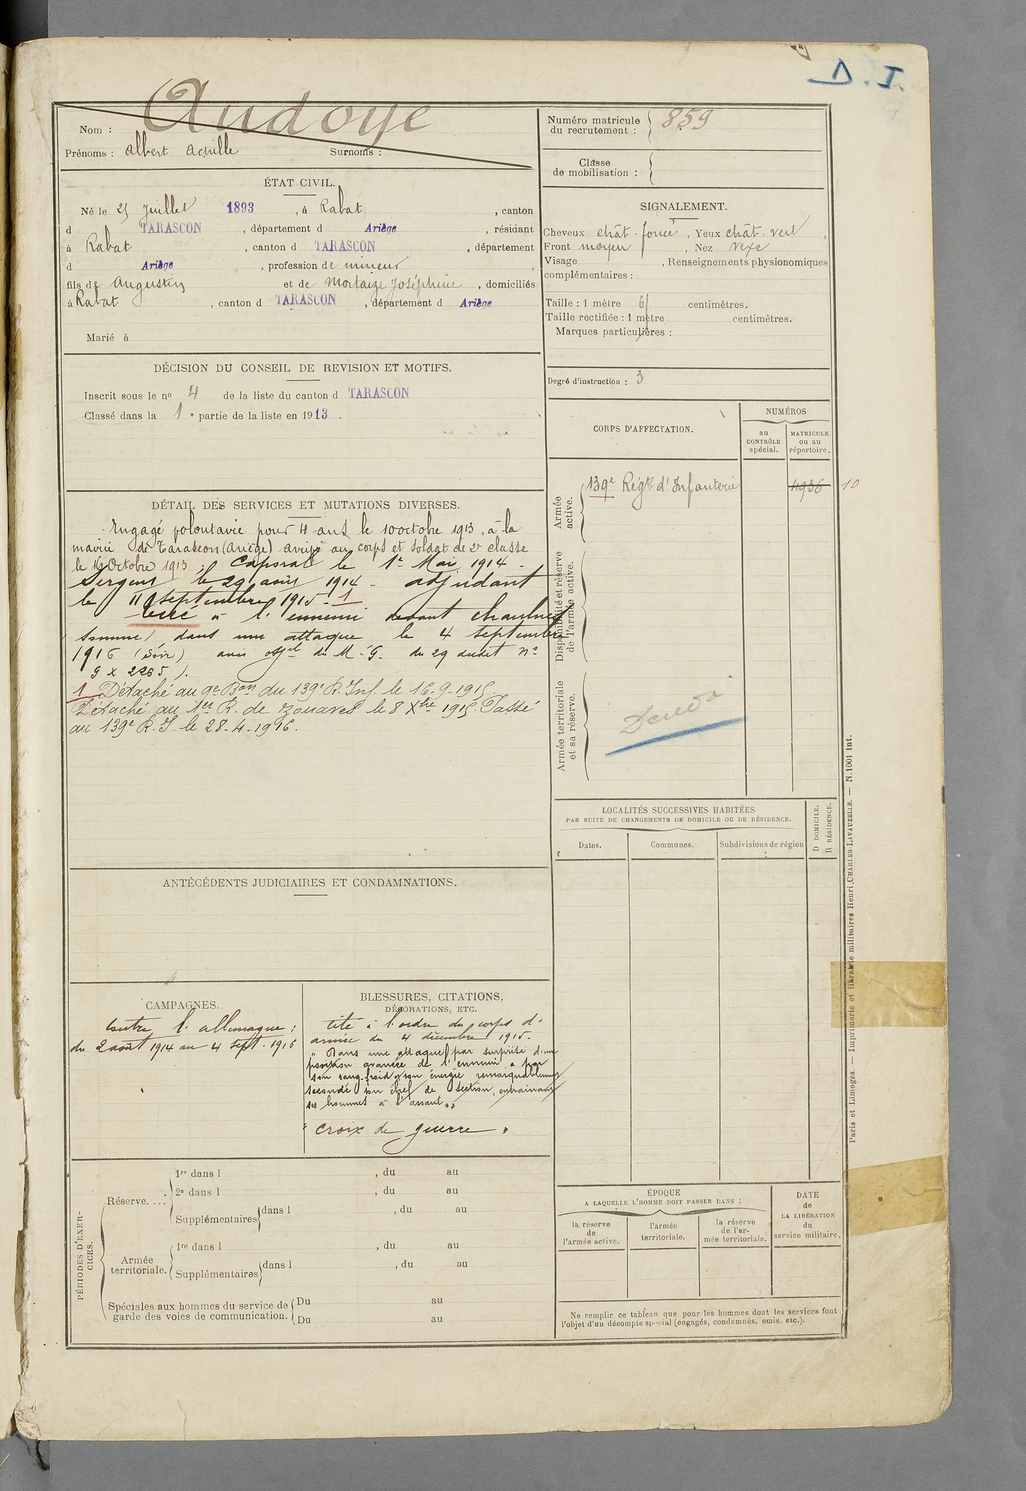 I. D.
Nom : Audoye
Prénoms : Albert Achille Surnoms :
Numéro matricule du recrutement : 859
Classe de mobilisation :
ÉTAT CIVIL.
Né le 25 Juillet 1893, à Rabat, canton
d TARASCON, département d Ariège, résidant
à Rabat, canton d TARASCON, département
d Ariège, profession de mineur
fils de Augustin et de Mortaize Joséphine, domiciliés
à Rabat, canton d TARASCON, département d Ariège
Marié à
SIGNALEMENT.
Cheveux chât. foncé, Yeux chât. vert,
Front moyen, Nez vexe
Visage , Renseignements physionomiques
complémentaires :
Taille : 1 mètre 61 centimètres.
Taille rectifiée : 1 mètre centimètres.
Marques particulières :
Degré d'instruction : 3
DÉCISION DU CONSEIL DE REVISION ET MOTIFS.
Inscrit sous le no 4 de la liste du canton d TARASCON
Classé dans la 1e partie de la liste en 1913.
CORPS D'AFFECTATION.
NUMÉROS
au CONTRÔLE spécial.
MATRICULE ou au répertoire.
Armée active.
139e Régt d'Infanterie 4936 10
Disponibilité et réserve de l'armée active.
Armée territoriale et sa réserve.
DÉTAIL DES SERVICES ET MUTATIONS DIVERSES.
Engagé volontaire pour 4 ans le 10 octobre 1913, à la
mairie de Tarascon (Ariège) arrivé au corps et soldat de 2e classe
le 16 Octobre 1913 ; Caporal le 1er Mai 1914 -
Sergent le 29 août 1914 - adjudant
le 11 septembre 1915 - 1
à l'ennemi devant Chaulnes
(Somme) dans une attaque le 4 septembre
1916 (Soir) avis offel du M.G. du 29 dudit no
9 X 2265).
1 Détaché au 9e Bon du 139e R. Inf. le 16-9-1915.
Détaché au 1er R. de Zouaves le 8 Xbre 1915 Passé
au 139e R.I. le 28-4-1916.
LOCALITÉS SUCCESSIVES HABITÉES
PAR SUITE DE CHANGEMENTS DE DOMICILE OU DE RÉSIDENCE.
Dates. Communes. Subdivisions de région
D DOMICILE. R RÉSIDENCE.
ANTÉCÉDENTS JUDICIAIRES ET CONDAMNATIONS.
CAMPAGNES.
Contre l'allemagne :
du 2 août 1914 au 4 sept. 1916
BLESSURES, CITATIONS,
DÉCORATIONS, ETC.
Cité à l'ordre du corps d'
armée du 4 décembre 1915.
" Dans une attaque par surprise d'une
position avancée de l'ennemi, a par
son sang-froid et son énergie remarquablement
secondé son chef de section, entraînant
ses hommes à l'assaut. "
" croix de guerre "
PÉRIODES D'EXERCICES.
Réserve....
1re dans l , du au
2e dans l , du au
Supplémentaires dans l , du au
Armée territoriale.
1re dans l , du au
Supplémentaires dans l , du au
Spéciales aux hommes du service de garde des voies de communication.
Du au
Du au
ÉPOQUE
A LAQUELLE L'HOMME DOIT PASSER DANS :
la réserve de l'armée active.
l'armée territoriale.
la réserve de l'armée territoriale.
DATE de LA LIBÉRATION du service militaire.
Ne remplir ce tableau que pour les hommes dont les services font
l'objet d'un décompte spécial (engagés, condamnés, omis, etc.).
Paris et Limoges. — Imprimerie et librairie militaires Henri CHARLES-LAVAUZELLE. — N. 1001 int.